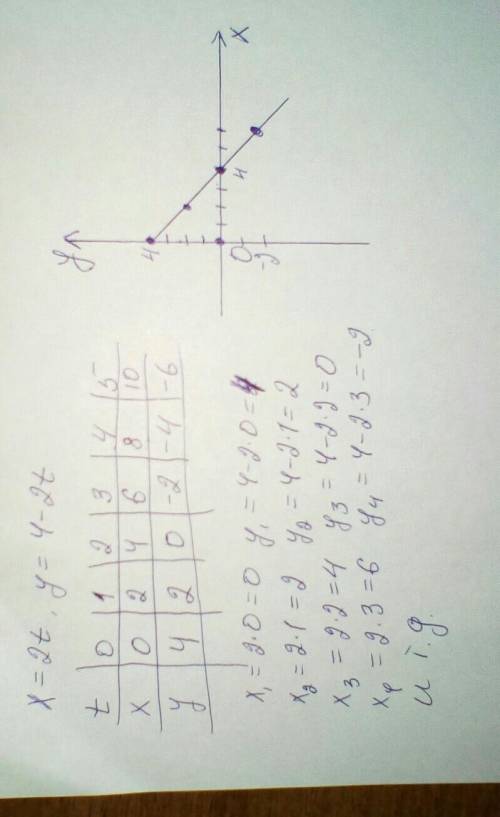 x = 2t, y = 4 - 2t
t | 0 | 1 | 2 | 3 | 4 | 5
x | 0 | 2 | 4 | 6 | 8 | 10
y | 4 | 2 | 0 | -2 | -4 | -6
x₁ = 2·0 = 0 y₁ = 4 - 2·0 = 4
x₂ = 2·1 = 2 y₂ = 4 - 2·1 = 2
x₃ = 2·2 = 4 y₃ = 4 - 2·2 = 0
x₄ = 2·3 = 6 y₄ = 4 - 2·3 = -2
и т.д.
y
4
0
-2
4
x